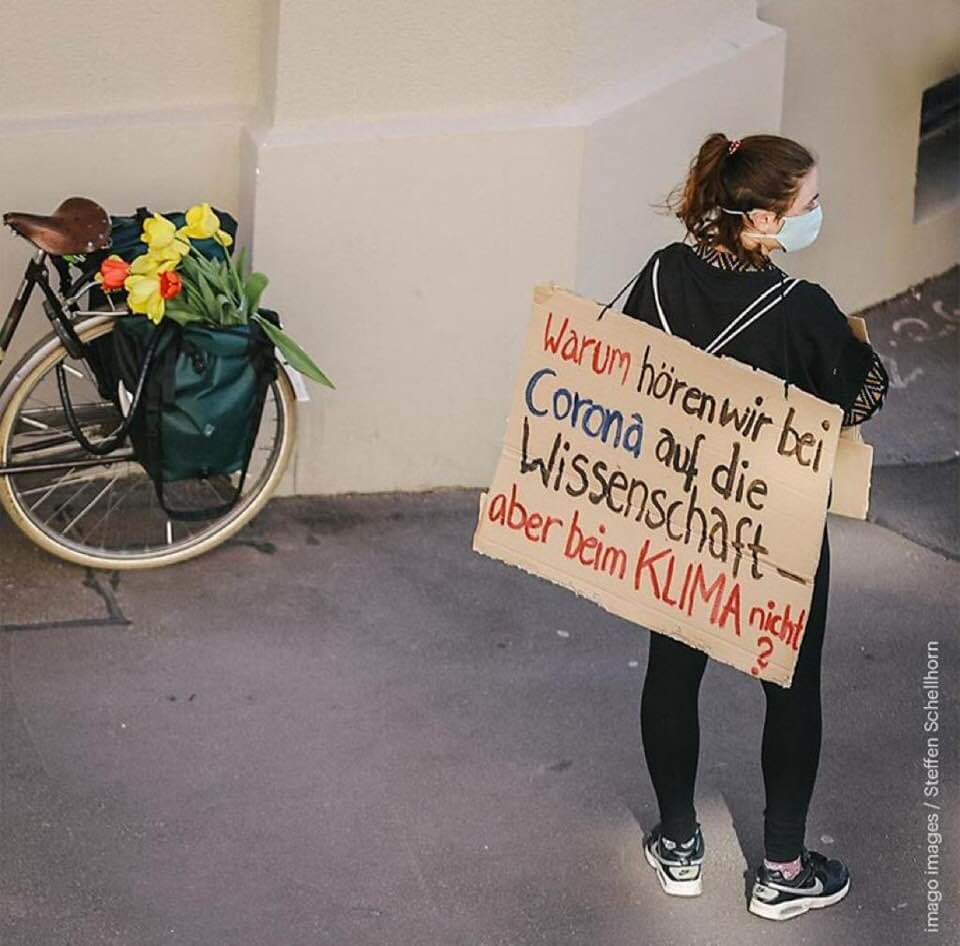 Warum hören wir bei
Corona auf die
Wissenschaft –
aber beim KLIMA nicht
?
imago images / Steffen Schellhorn